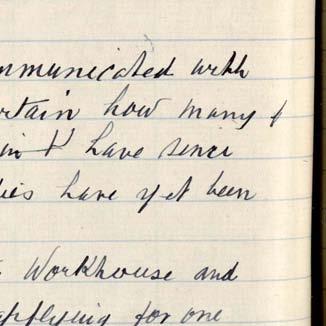 mmunicated with
rtain how many &
in & have since
ies have yet been
Workhouse and
applying for one